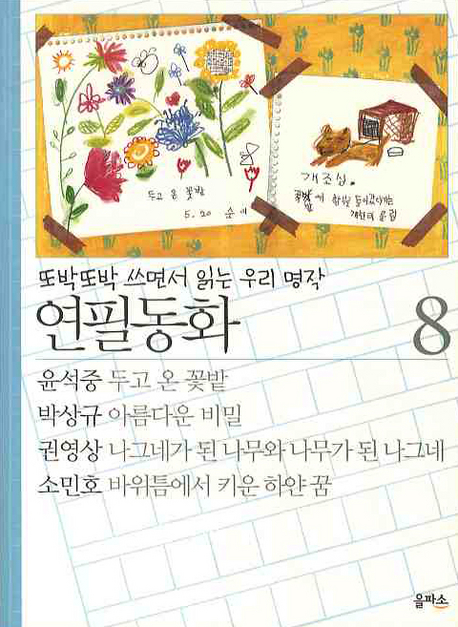 두고 온 꽃밭
5.20 순이
개조심.
꽃밭에 함부로 들어갔다가는
개한테 물림
또박또박 쓰면서 읽는 우리 명작
연필동화 8
윤석중 두고 온 꽃밭
박상규 아름다운 비밀
권영상 나그네가 된 나무와 나무가 된 나그네
소민호 바위틈에서 키운 하얀 꿈
을파소